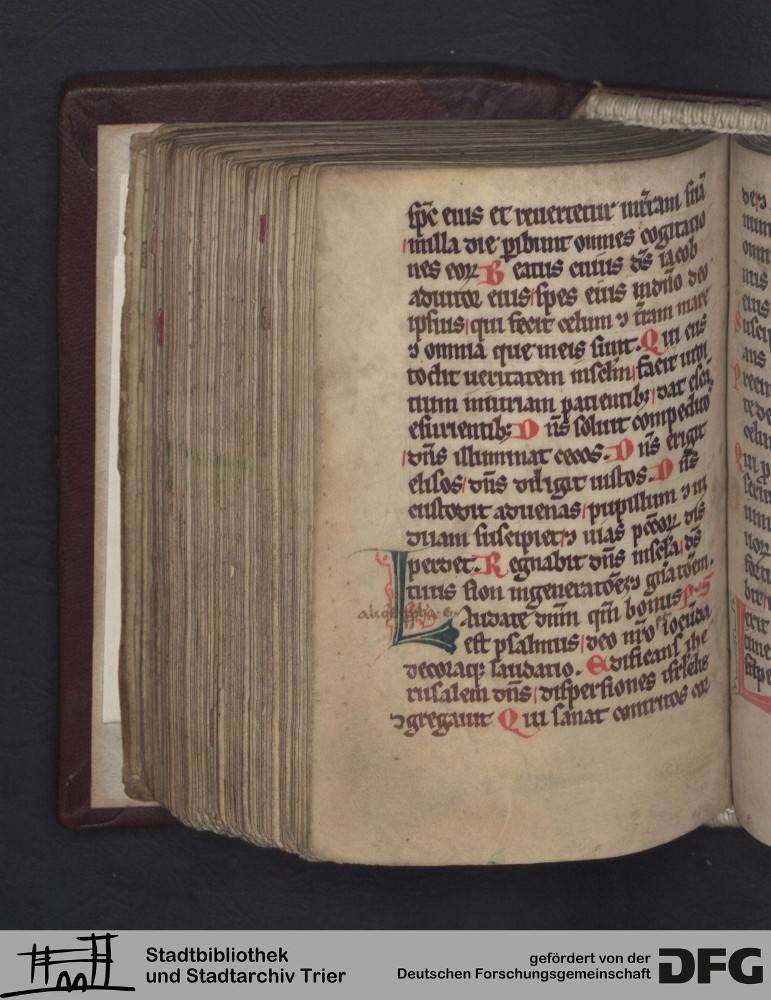 sp̄c eius et reuertetur in t̄ram suā
in illa die ꝑibunt omnes cogitatio
nes eoꝝ Beatus cuius ds̄ iacob
adiutor eius spes eius in dn̄o deo
ipsius qui fecit celum ⁊ t̄ram mare
⁊ omnia que in eis sunt. Qui cus
todit ueritatem in sclm̄ facit iudi
cium iniuriam patientibꝫ dat escā
esurientibꝫ Dn̄s soluit compeditos
dn̄s illuminat cecos. Dn̄s erigit
elisos dn̄s diligit iustos. Dn̄s
custodit aduenas pupillum ⁊ ui
duam suscipiet ⁊ uias pcc̄oꝝ dis
perdet. Regnabit dn̄s in scl̄a ds̄
tuus sion in generatōeꝫ ⁊ gn̄atōem.
Laudate dn̄m qm̄ bonus ps̄
est psalmus deo nr̄o iocūda
decoraqꝫ laudatio. Edificans ihe
rusalem dn̄s dispersiones isrl̄is
ꝯgregauit Qui sanat contritos cor
Stadtbibliothek
und Stadtarchiv Trier
gefördert von der
Deutschen Forschungsgemeinschaft
DFG